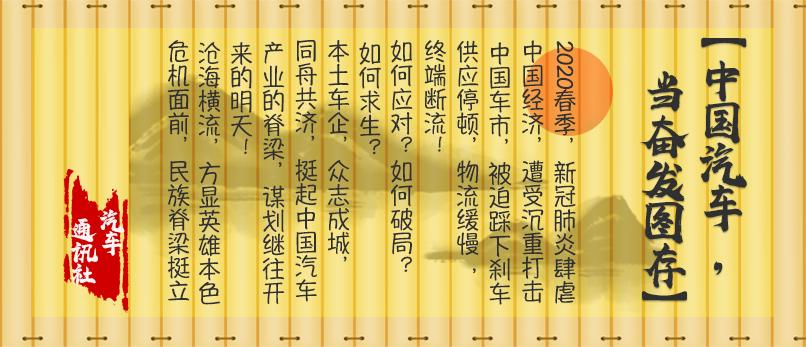 【中国汽车，
当奋发图存】
2020春季，新冠肺炎肆虐
中国经济，遭受沉重打击
中国车市，被迫踩下刹车
供应停顿，物流缓慢，
终端断流！
如何应对？如何破局？
如何求生？
本土车企，众志成城，
同舟共济，挺起中国汽车
产业的脊梁，谋划继往开
来的明天！
沧海横流，方显英雄本色
危机面前，民族脊梁挺立
汽车
通讯社